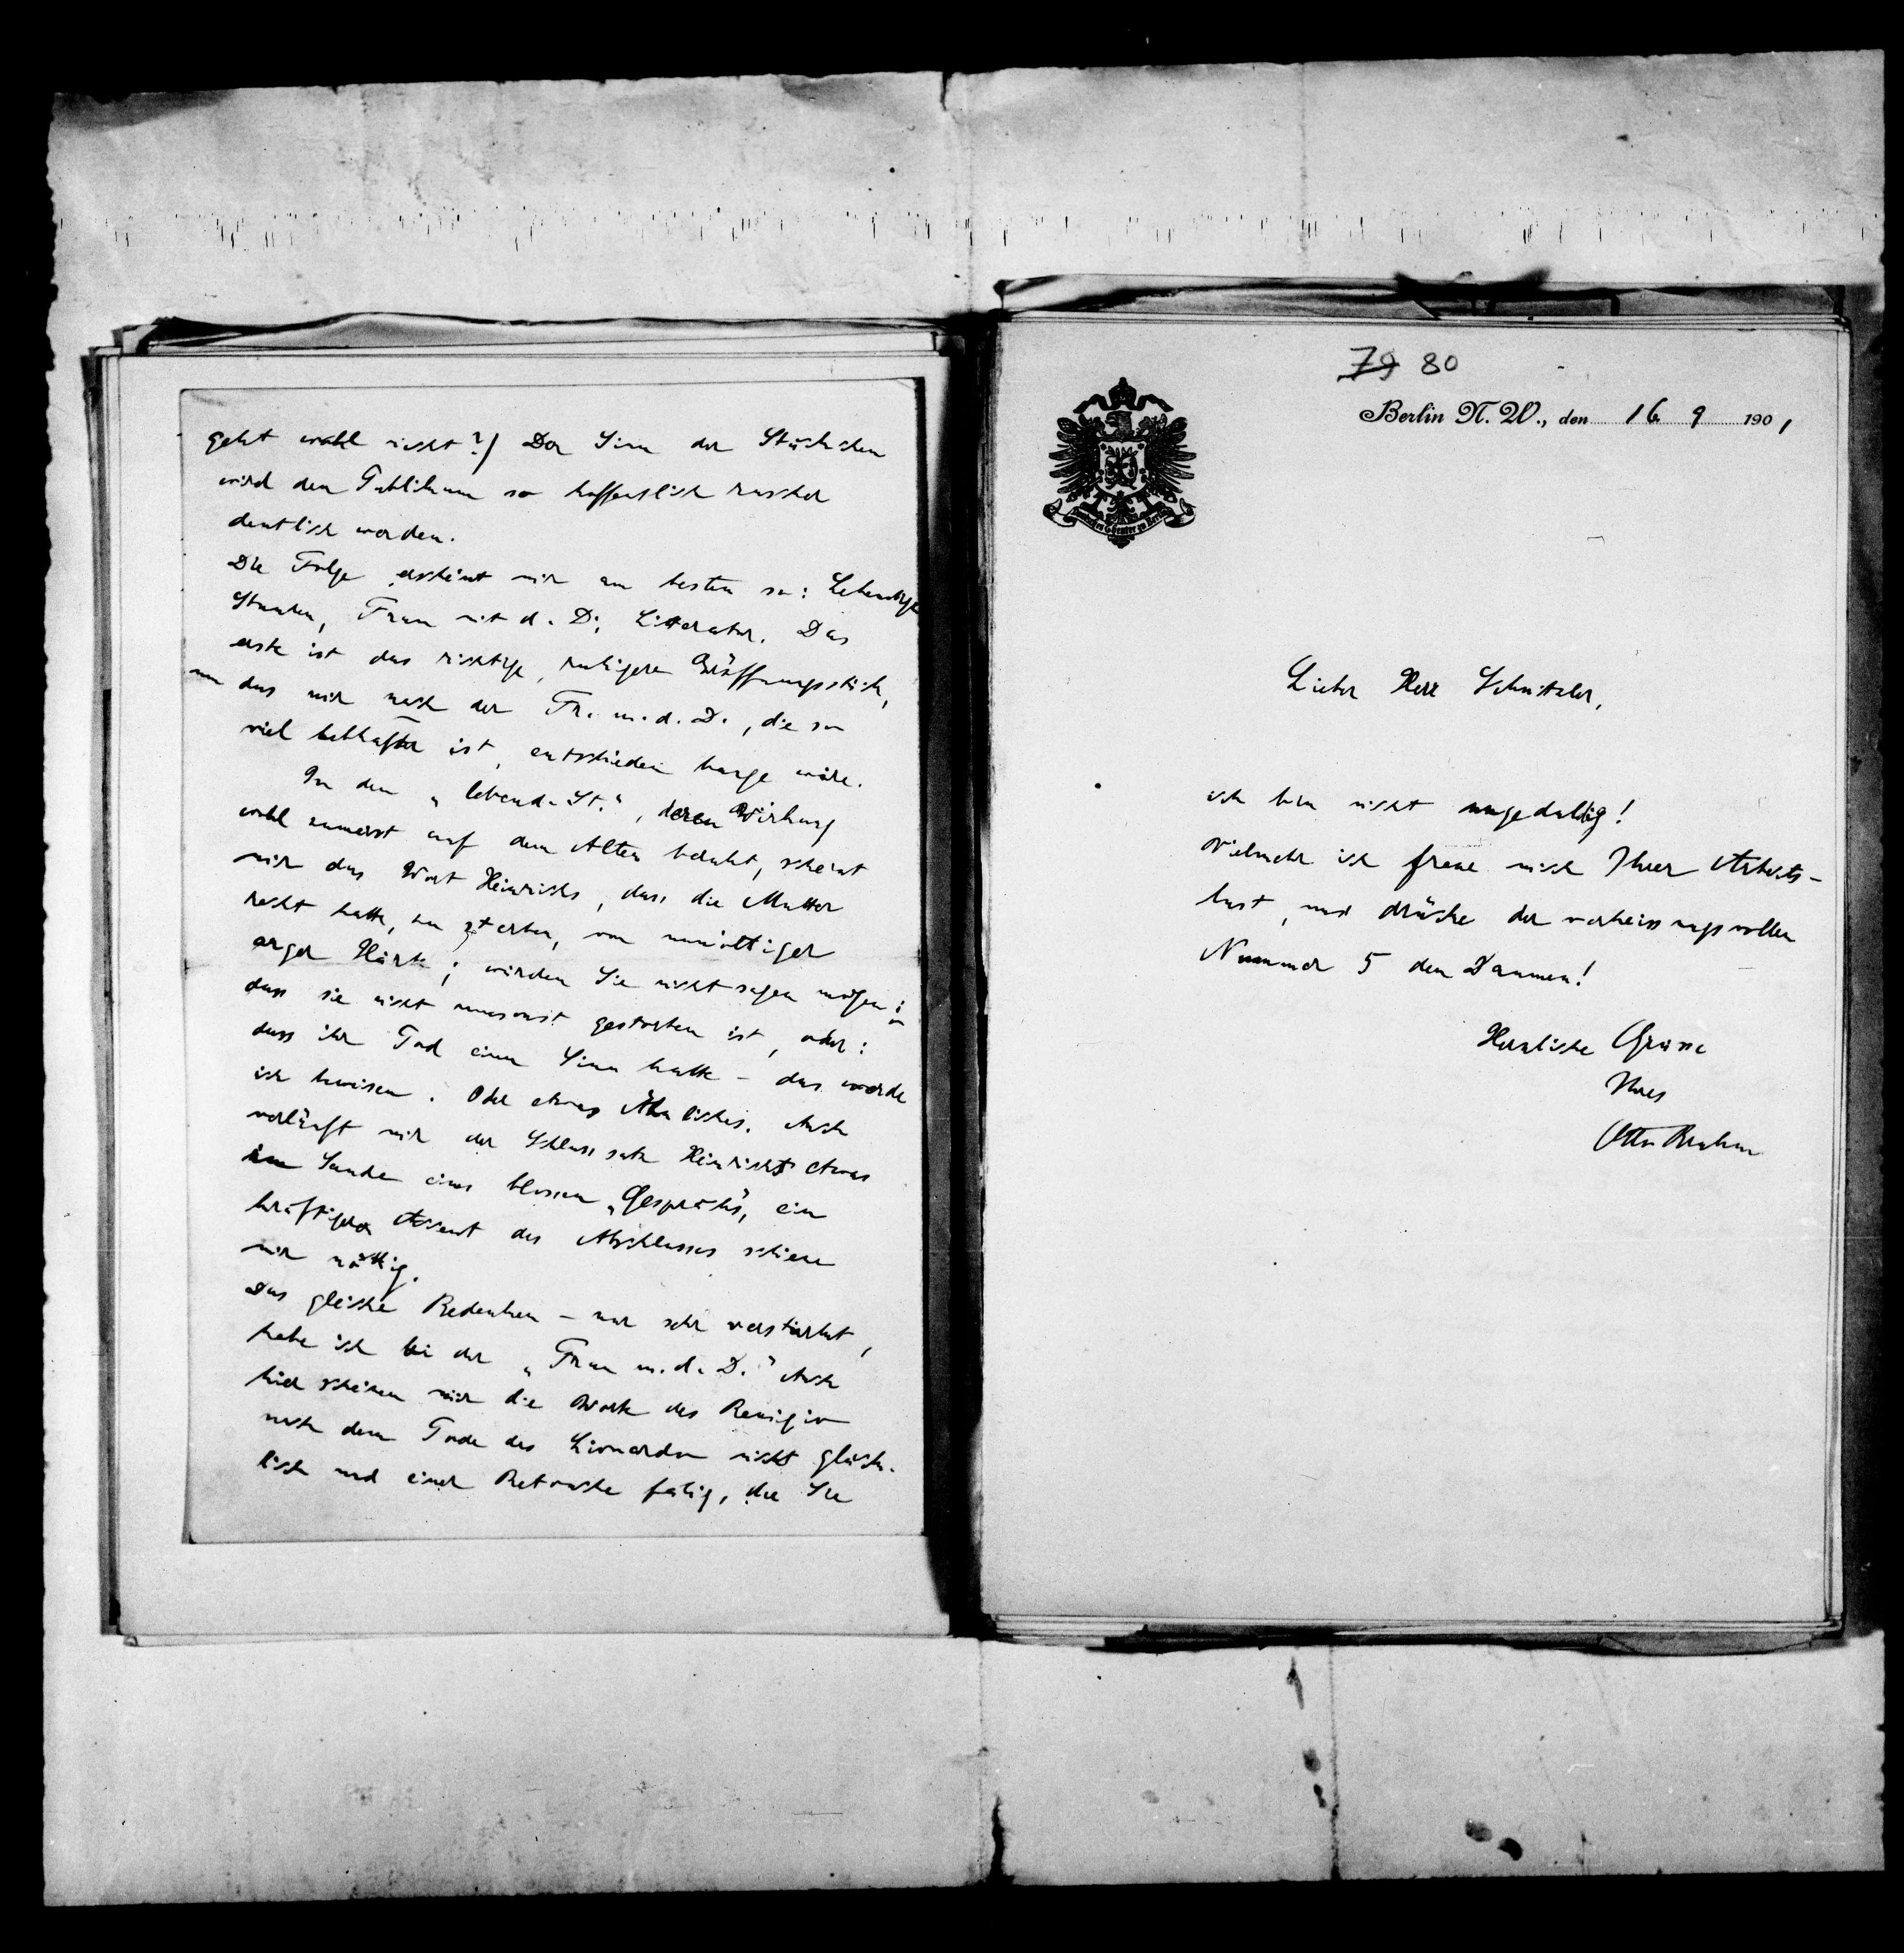 geht wohl nicht?) Der Sinn der Stückchen
wird dem Publikum so hoffentlich rascher
deutlich werden.
Die Folge erscheint mir am besten so: Lebendige
Stunden, Frau mit d. D., Litteratur. Das
erste ist das richtige, ruhigere Eröffnungsstück,
um das mir nach der Fr. m. d. D., die so
viel lebhafter ist, entschieden bange wäre.
In den „lebend. St.", deren Wirkung
wohl zumeist auf dem Alten beruht, scheint
mir das Wort Heinrichs, dass die Mutter
recht hatte, zu sterben, von unnöttiger
arger Härte; würden Sie nicht sagen mögen:
dass sie nicht umsonst gestorben ist, oder:
dass ihr Tod einen Sinn hatte – das werde
ich beweisen. Oder etwas Ähnliches. Auch
verläuft mir der Schlusssatz Heinrichs etwas
im Sande eines blossen „Gesprächs", ein
kräftigerer Accent des Abschlusses schiene
mir nöttig.
Das gleiche Bedenken – nur sehr verstärkt,
habe ich bei der „Frau m. d. D." Auch
hier scheinen mir die Worte des Remigio
nach dem Tode des Lionardo nicht glück-
lich und einer Retouche fähig, die Sie
79 80
Berlin N. W., den 16 9 1901
Deutsches Theater zu Berlin
Lieber Herr Schnitzler,
ich bin nicht ungeduldig!
Vielmehr ich freue mich Ihrer Arbeits-
lust, und drücke der verheissungsvollen
Nummer 5 den Daumen!
Herzliche Grüsse
Ihres
Otto Brahm